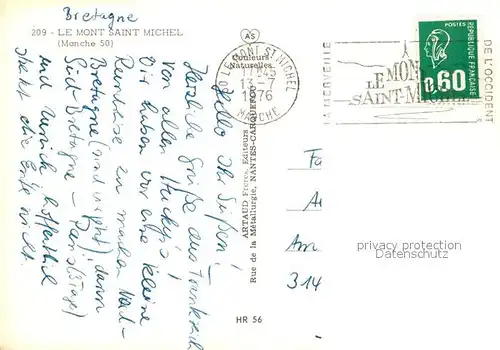 Bretagne
209 - LE MONT SAINT MICHEL
(Manche 50)
AS
Couleurs
Naturelles
50 LE MONT ST MICHEL
1645
13-7
1976
MANCHE
LA MERVEILLE
LE MONT
SAINT-MICHEL
DE L'OCCIDENT
POSTES
0,60
REPUBLIQUE FRANÇAISE
Hallo Ihr Süßen!
Herzliche Grüße aus Frankreich
von allen
Wir haben vor eine kleine
Rundreise zu machen Nord-
Bretagne (sind wir jetzt), dann
Süd-Bretagne - Paris (3 Tage)
und zurück, hoffentlich
streikt die Ente nicht.
ARTAUD Frères, Editeurs
Rue de la Métallurgie, NANTES-CARQUEFOU
HR 56
Am
314
privacy protection
Datenschutz